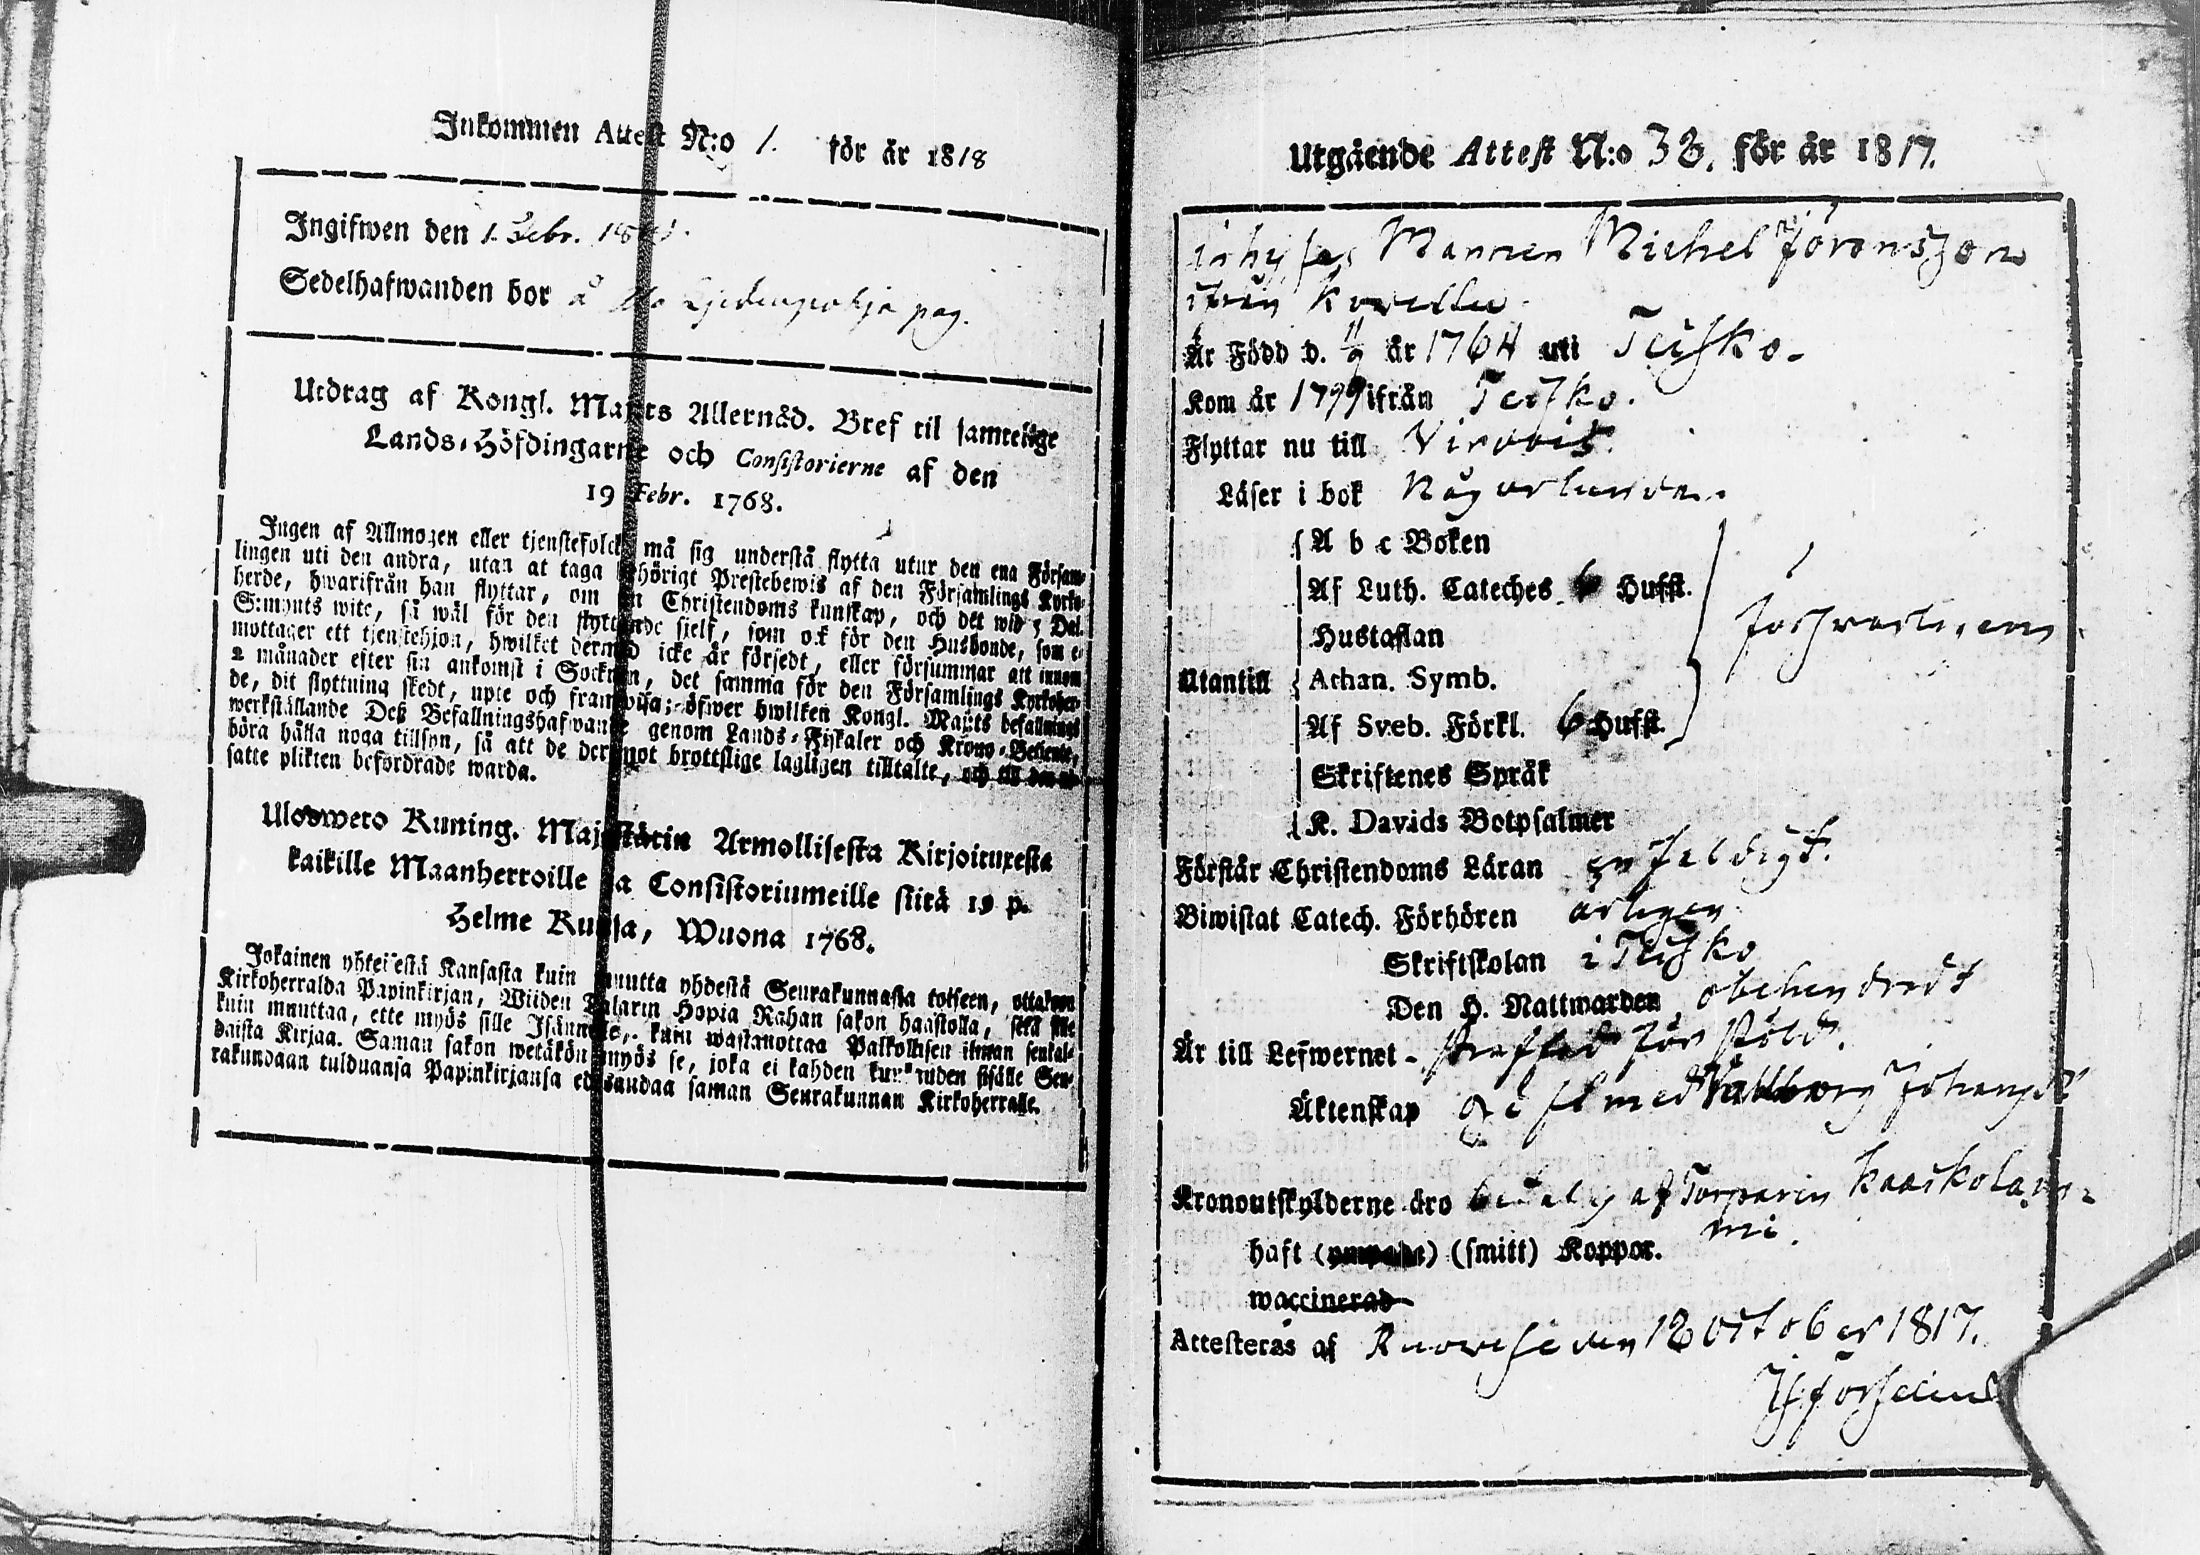 Inkommen Attest N:o 1. för år 1818
Ingifwen den 1. Febr. 1818.
Sedelhafwanden bor å pag.
Utdrag af Kongl. Maj:ts Allernåd. Bref til samtelige
Lands-Höfdingarne och Consistorierne af den
19 Febr. 1768.
Ingen af Allmogen eller tjenstefolck må sig understå flytta utur den ena Försam-
lingen uti den andra, utan at taga behörigt Prestebewis af den Församlings Kyrko-
herde, hwarifrån han flyttar, om sin Christendoms kunskap, och det wid 5 Dal.
S:mynts wite, så wäl för den flyttande sjelf, som ock för den Husbonde, som e-
mottager ett tjenstehjon, hwilket dermed icke är försedt, eller försummar att innom
2 månader efter sin ankomst i Socknen, det samma för den Församlings Kyrkoher-
de, dit flyttning skedt, upte och framwisa; öfwer hwilken Kongl. Maj:ts befallnings
werkställande Deß Befallningshafwande genom Lands-Fiskaler och Krono-Betiente,
böra hålla noga tillsyn, så att de deremot brottslige lagligen tilltalte, och till den ut-
satte plikten befordrade warda.
Uloswero Kuning. Majestätin Armollisesta Kirjoituxesta
kaikille Maanherroille ja Consistoriumeille siitä 19 p.
Helme Kuusa, Wuona 1768.
Jokainen yhteisestä Kansasta kuin muutta yhdestä Seurakunnasta toiseen, ottakoon
Kirkoherralda Papinkirjan, Wiiden Talarin Hopia Rahan sakon haastolla, sekä sille
kuin muuttaa, ette myös sille Isännälle, kuin wastanottaa Palkollisen ilman senkal-
daista Kirjaa. Saman sakon wetäkön myös se, joka ei kahden kuukauden sisälle Seu-
rakundaan tulduansa Papinkirjansa edesandaa saman Seurakunnan Kirkoherralle.
Utgående Attest N:o 38. för år 1817.
inhyses Mannen Michel Jöransson
ifrån
Är Född d. 11/9 år 1764 uti Teisko.
Kom år 1799 ifrån Teisko.
Flyttar nu till Virdois.
Läser i bok någorlunda.
A b c Boken
Af Luth. Cateches 6 Hufst.
Hustaflan
Utantill Athan. Symb. försvarligen
Af Sveb. Förkl. 6 Hufst.
Skriftenes Språk
K. Davids Botpsalmer
Förstår Christendoms Läran enfeldigt.
Biwistat Catech. Förhören årligen
Skriftskolan i Teisko
Den H. Nattwarden obehindradt
Är till Lefwernet straffad för stöld.
Äktenskap gift med Vallborg Johansdr
Kronoutskylderne äro betalt af Torparen Kaaskolam-
mi.
haft () (smitt) Koppor.
waccinerad
Attesteras af Ruovesi den 12 October 1817.